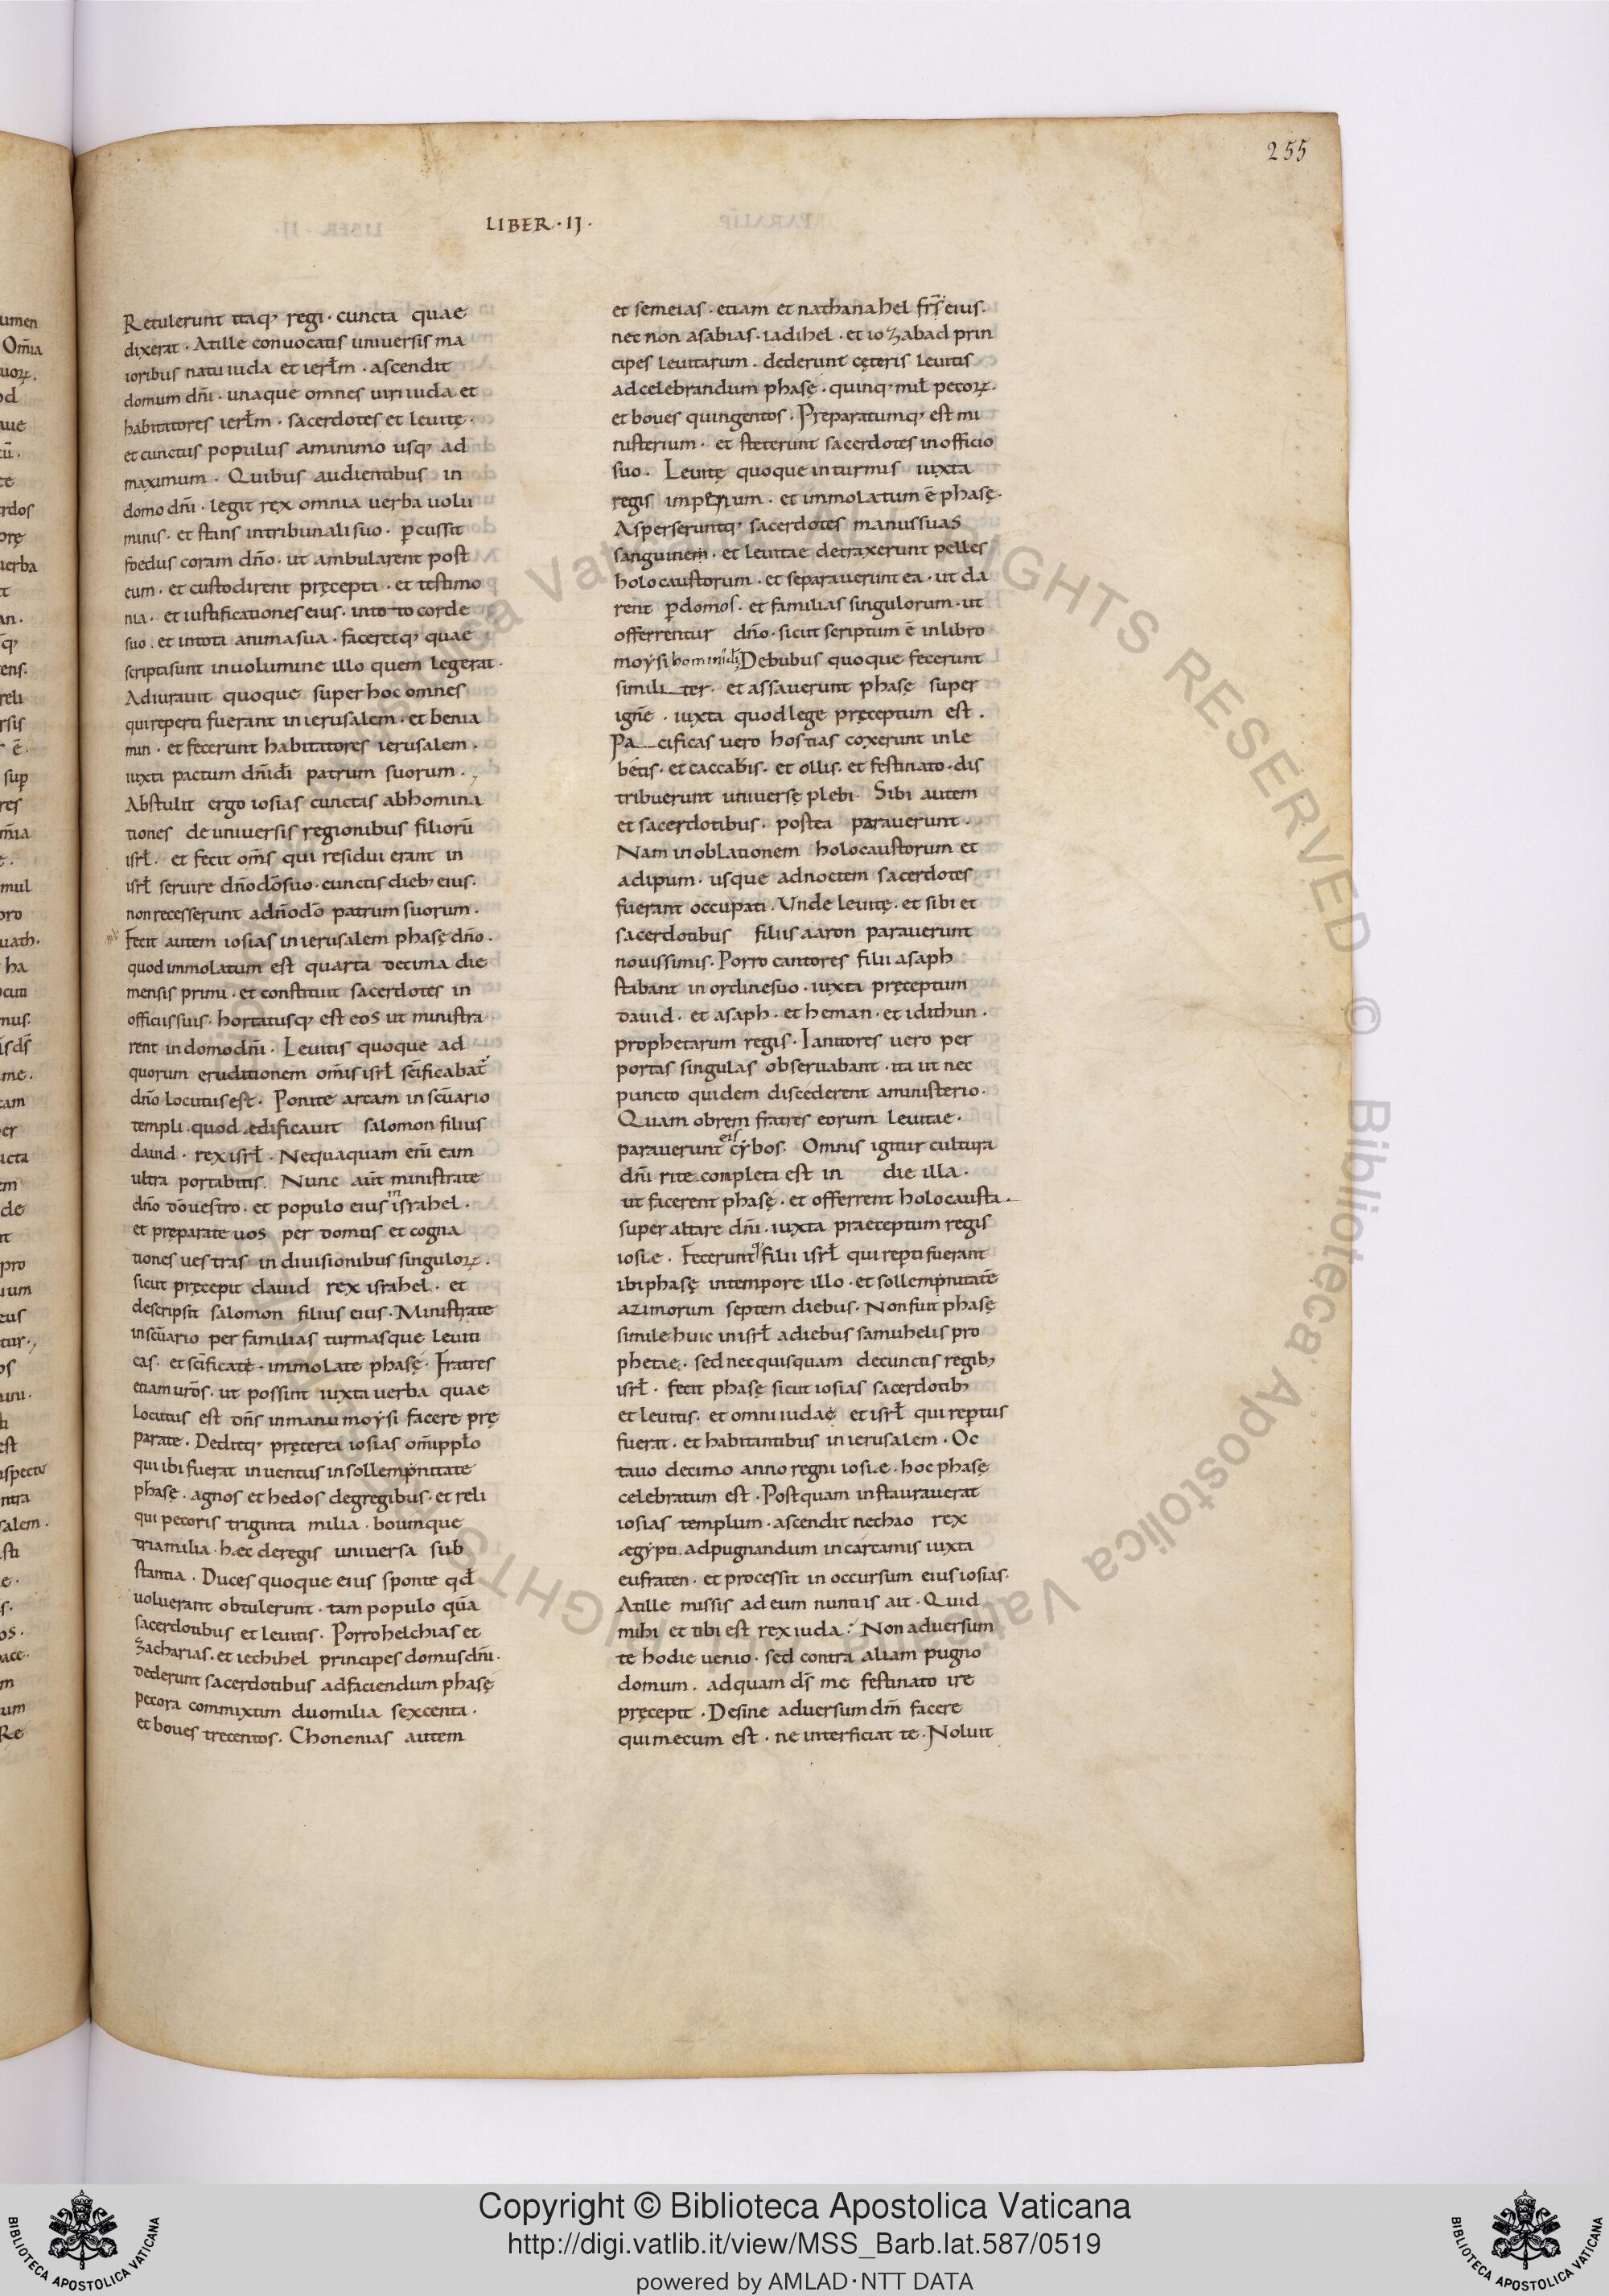 255
LIBER · IJ ·
Retulerunt itaq; regi · cuncta quae
dixerat · Atille convocatis universis ma
ioribus natu iuda et ierłm · ascendit
domum dñi · unaque omnes uiri iuda et
habitatores ierłm · sacerdotes et leuitę ·
et cunctus populus aminimo usq; ad
maximum · Quibus audientibus in
domo dñi · legit rex omnia uerba uolu
minis · et stans intribunali suo · p̱cussit
foedus coram dño · ut ambularent post
eum · et custodirent pręcepta · et testimo
nia · et iustificationes eius · into to corde
suo · et intota anima sua · faceretq; quae
scripta sunt inuolumine illo quem legerat ·
Adiurauit quoque super hoc omnes
qui reperti fuerant in ierusalem · et benia
min · et fecerunt habitatores ierusalem ·
iuxta pactum dñi dī patrum suorum ·
Abstulit ergo iosias cunctas abhomina
tiones de universis regionibus filiorū
isrł · et fecit om̄s qui residui erant in
isrł seruire dño dō suo · cunctis dieb; eius ·
non recesserunt adño dō patrum suorum ·
Fecit autem iosias in ierusalem phasę dño ·
quod immolatum est quarta decima die
mensis primi · et constituit sacerdotes in
officiis suis · hortatusq; est eos ut ministra
rent in domo dñi · Leuitis quoque ad
quorum eruditionem om̄is isrł sc̄ificabat᷑
dño locutus est · Ponite arcam in sc̄uario
templi · quod ędificauit salomon filius
dauid · rex isrł · Nequaquam enī eam
ultra portabitis · Nunc aūt ministrate
m
dño dō uestro · et populo eius israhel ·
et pręparate uos per domus et cogna
tiones ues tras in diuisionibus singuloꝝ ·
sicut pręcepit dauid rex israhel · et
descripsit salomon filius eius · Ministrate
insc̄uario per familias turmasque leuiti
cas · et sc̄ificate · immolate phasę · Fratres
etiam ur̄os · ut possint iuxta uerba quae
locutus est dñs inmanu moysi facere prę
parate · Deditq; pręterea iosias om̄i ppło
qui ibi fuerat in uentus in sollempnitate
phasę · agnos et hedos degregibus · et reli
qui pecoris triginta milia · boumque
tria milia · hæc deregis universa sub
stantia · Duces quoque eius sponte qđ
uoluerant obtulerunt · tam populo quā
sacerdotibus et leuitis · Porro helchias et
zacharias · et iechihel principes domus dñi ·
dederunt sacerdotibus adfaciendum phasę
pecora commixtim duo milia sexcenta ·
et boues trecentos · Chonenias autem
et semeias · etiam et nathanahel fr̄s eius ·
nec non asabias · iadihel · et iozabad prin
cipes leuitarum · dederunt cęteris leuitis
adcelebrandum phasę · quinq; mił pecoꝝ ·
et boues quingentos · Pręparatumq; est mi
nisterium · et steterunt sacerdotes inofficio
suo · Leuitę quoque in turmis iuxta
regis imperium · et immolatum ē phasę ·
Asperseruntq; sacerdotes manus suas
sanguinem · et leuitae detraxerunt pelles
holocaustorum · et separauerunt ea · ut da
rent p̱ domos · et familias singulorum · ut
offerrentur dño · sicut scriptum ē inlibro
moysi hominis dī Debubus quoque fecerunt
simili ter · et assauerunt phasę super
ignē · iuxta quod lege pręceptum est ·
Pa cificas uero hostias coxerunt in le
betis · et caccabis · et ollis · et festinato · dis
tribuerunt universę plebi · Sibi autem
et sacerdotibus · postea parauerunt ·
Nam in oblationem holocaustorum et
adipum · usque adnoctem sacerdotes
fuerant occupati · Unde leuitę · et sibi et
sacerdotibus filiis aaron parauerunt
nouissimis · Porro cantores filii asaph
stabant in ordine suo · iuxta pręceptum
dauid · et asaph · et heman · et idithun ·
prophetarum regis · Ianitores uero per
portas singulas obseruabant · ita ut nec
puncto quidem discederent aministerio ·
Quam obrem fratres eorum leuitae ·
eis
parauerunt cybos · Omnis igitur cultura
dñi rite completa est in die illa ·
ut facerent phasę · et offerrent holocausta ·
super altare dñi · iuxta praeceptum regis
iosie · Fecerunt q; filii isrł qui rep̱ti fuerant
ibi phasę intempore illo · et sollempnitatē
azimorum septem diebus · Non fuit phasę
simile huic in isrł adiebus samuhelis pro
phetae · sed nec quisquam decunctis regib;
isrł · fecit phasę sicut iosias sacerdotib;
et leuitis · et omni iudaę et isrł qui rep̱tus
fuerat · et habitantibus in ierusalem · Oc
tauo decimo anno regni iosie · hoc phasę
celebratum est · Postquam instaurauerat
iosias templum · ascendit nechao rex
ægypti · adpugnandum in carcamis iuxta
eufraten · et processit in occursum eius iosias ·
Atille missis ad eum nuntiis ait · Quid
mihi et tibi est rex iuda · Non adversum
te hodie uenio · sed contra aliam pugno
domum · adquam dS me festinato ire
pręcepit · Desine adversum dm̄ facere
qui mecum est · ne interficiat te · Noluit
Copyright © Biblioteca Apostolica Vaticana
http://digi.vatlib.it/view/MSS_Barb.lat.587/0519
powered by AMLAD·NTT DATA
BIBLIOTECA APOSTOLICA VATICANA
BIBLIOTECA APOSTOLICA VATICANA